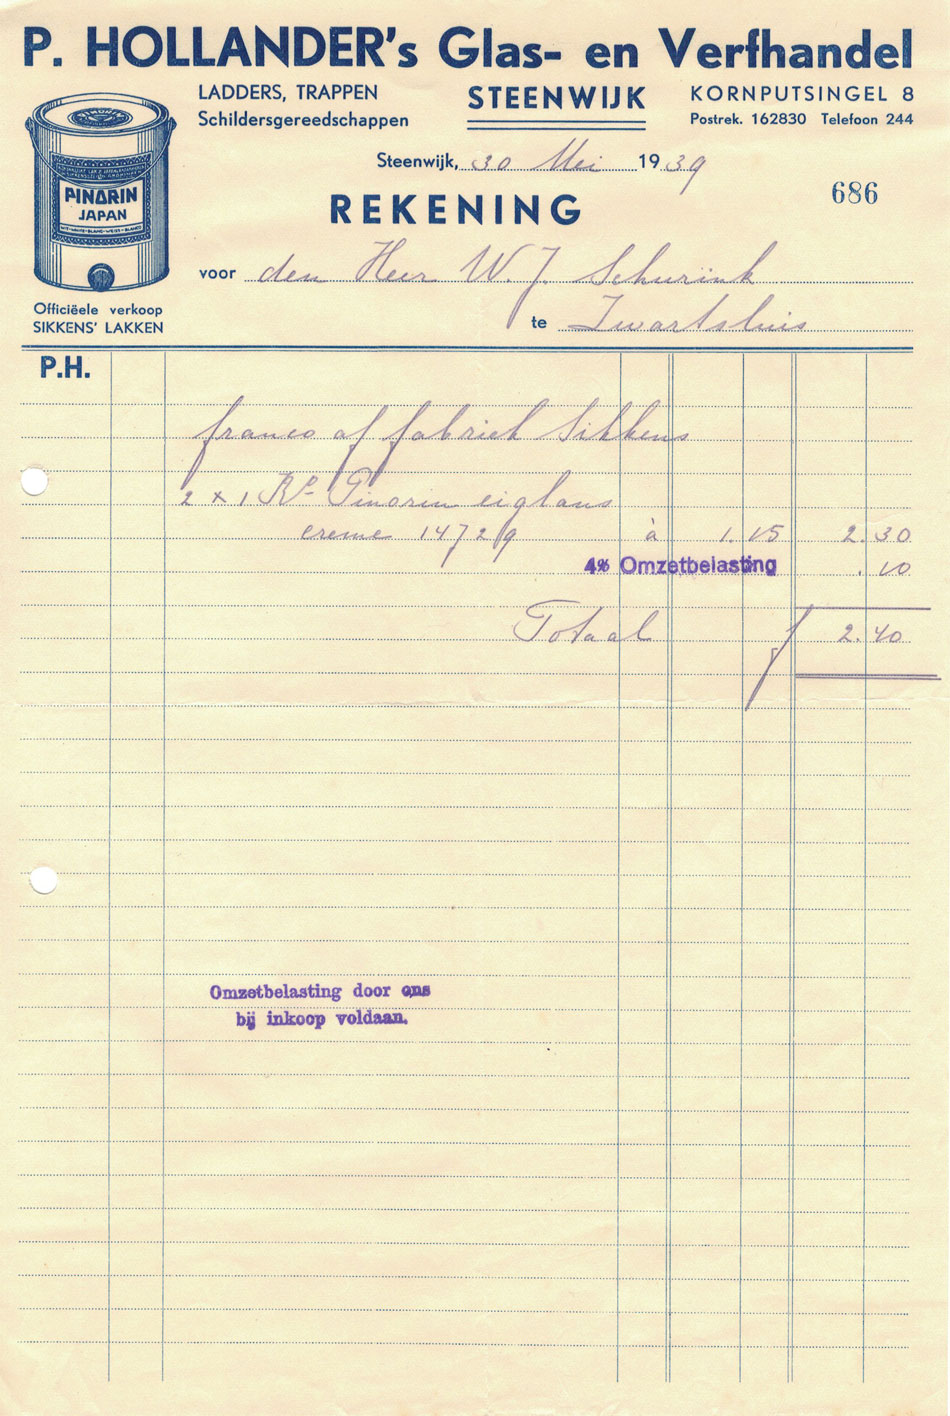 P. HOLLANDER's Glas- en Verfhandel
LADDERS, TRAPPEN
Schildersgereedschappen
STEENWIJK
KORNPUTSINGEL 8
Postrek. 162830 Telefoon 244
Steenwijk, 30 Mei 1939
686
REKENING
PINORIN
JAPAN
WIT-WHITE-BLANC-WEISS-BLANCO
Officiëele verkoop
SIKKENS' LAKKEN
voor den Heer W. J. Schurink
te Zwartsluis
P.H.
franco af fabriek Sikkens
2 x 1 Ko Pinorin eiglans
creme 14729 à 1.15 2.30
4% Omzetbelasting .10
Totaal f 2.40
Omzetbelasting door ons
bij inkoop voldaan.